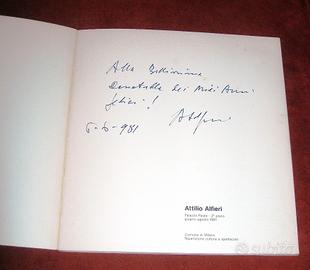 Alla Bellissima
Donatella dei Miei Anni
felici!
6-6-981
Attilio Alfieri
Palazzo Reale - 2° piano
giugno-agosto 1981
Comune di Milano
Ripartizione cultura e spettacolo
subito